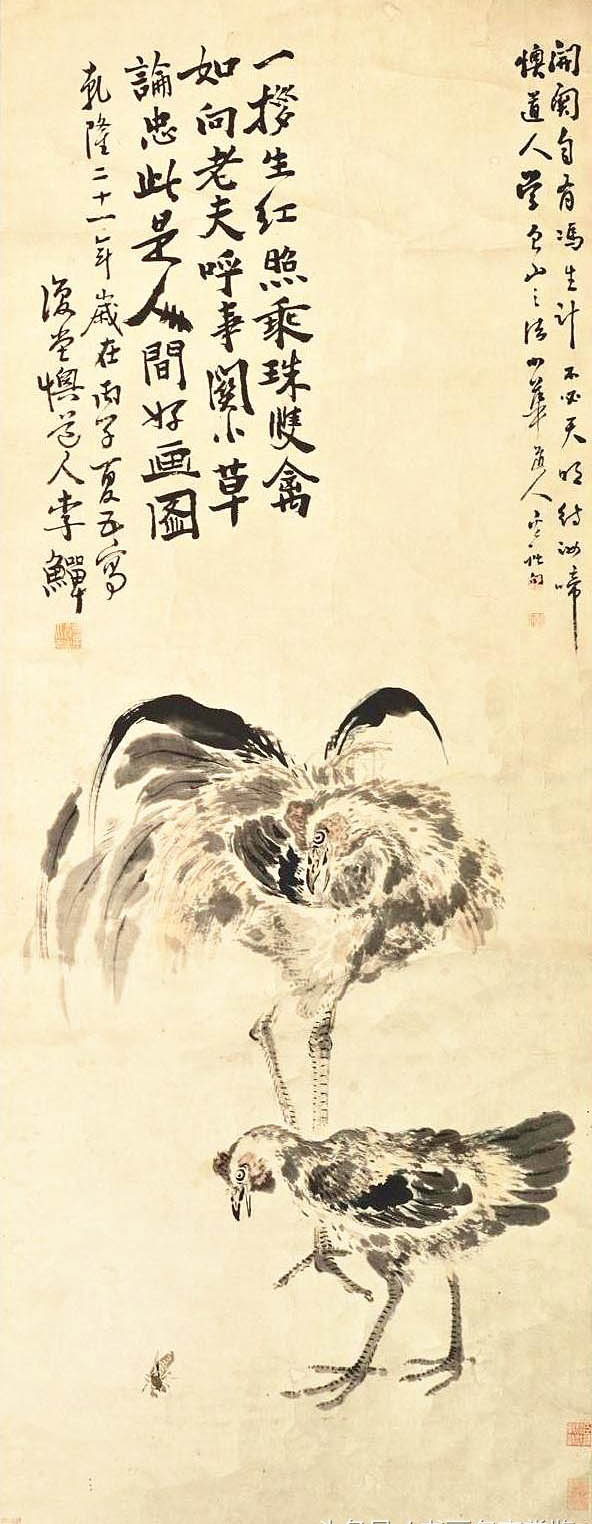 開關自有馮生計不必天明待汝啼
懊道人學之法華道人
一拶生紅照乘珠雙禽
如向老夫呼事關小草
論忠此是人間好画圖
乾隆二十一年歲在丙子夏五寫
復堂懊道人李鱓